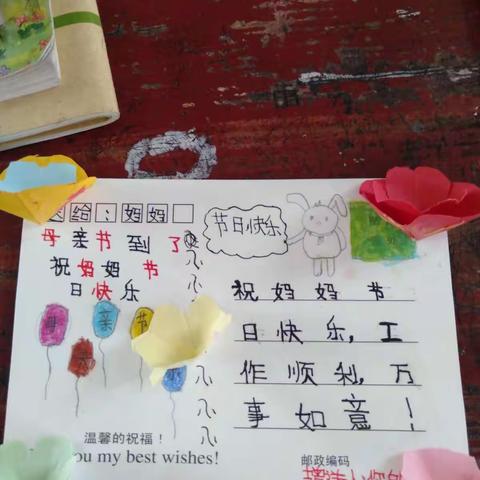 送给：妈妈
母亲节到了
祝妈妈节
日快乐
节日快乐
祝妈妈节
日快乐，工
作顺利，万
事如意！
母
亲
节
温馨的祝福！
you my best wishes!
邮政编码